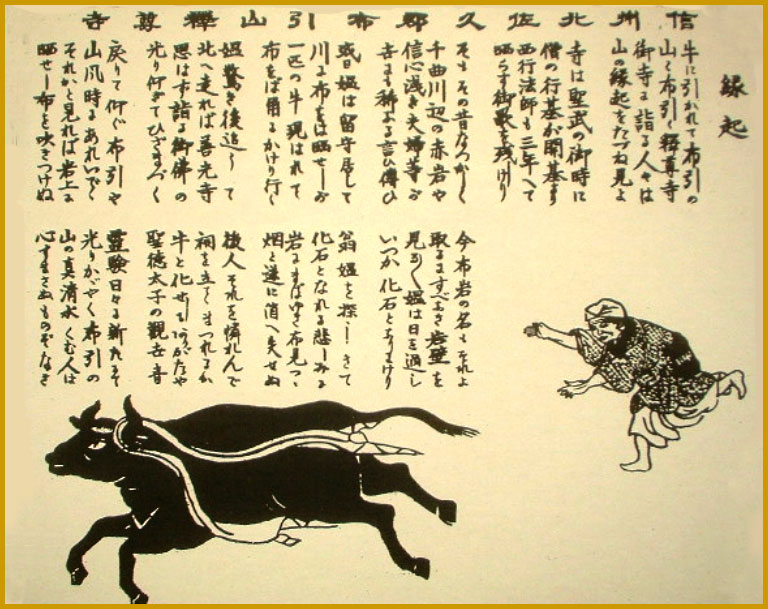 信州北佐久郡布引山釋尊寺
縁起
牛に引かれて布引の
山く布引釋尊寺
御寺に詣る人々は
山の縁起をたづね見よ
寺は聖武の御時に
僧の行基が開基なり
西行法師も三年へて
晒らす御歌を残けり
そもその昔
千曲川辺の赤岩や
信心浅き夫婦等が
言ひ傳ひ
或日媼は留守居して
川に布をば晒せしが
一匹の牛現はれて
布をば角にかけ行く
媼驚き後追ひて
北へ走れば善光寺
思はず詣る御佛の
光り仰ぎてひざまづく
戻りて仰ぐ布引や
山風時にあれいでて
それかと見れば岩上に
晒せし布を吹きつけぬ
今布岩の名もそれよ
取るにすべなき岩壁を
見るべく媼は日を過し
いつか化石となりにけり
翁媼を探しきて
化石となれる悲しみに
岩にまばゆき布見つつ
烟と遂に消へ失せぬ
後人それを憐れんで
祠を立ててまつれるが
牛と化せしありがたや
聖徳太子の觀世音
霊験日々に新たにぞ
光りかがやく布引の
山の真清水くむ人は
心すまさぬものぞなき